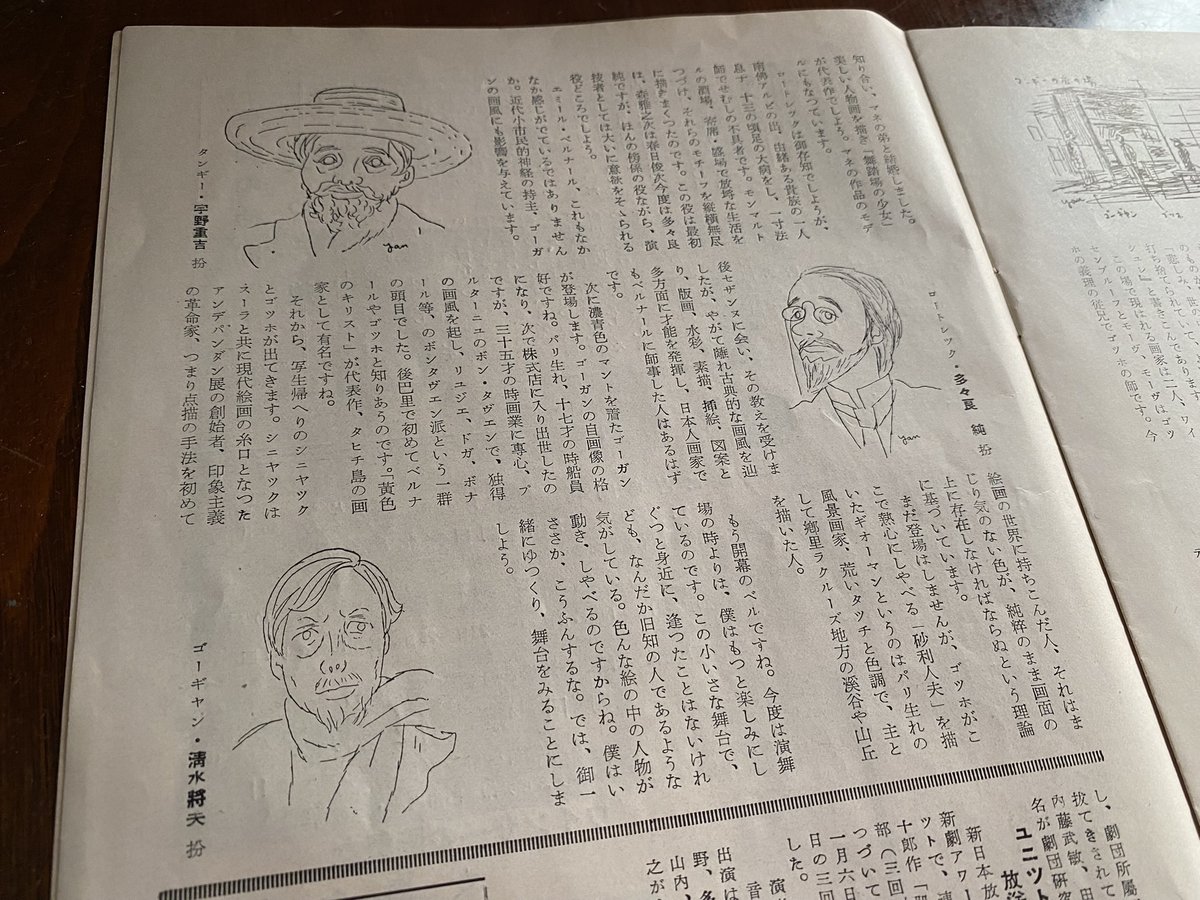 ゴーギャン
知り合い、マネの弟と結婚しました。
美しい人物画を描き「舞踏場の少女」
が代表作でしょう。マネの作品のモデ
ルにもなつています。
ロートレックは御存知でしょうが、
南佛アルビの出、由緒ある貴族の一人
息子、十三の頃足の大病をし、一寸法
師でせむしの不具者です。モンマルト
ルの酒場、寄席・盛場で放埓な生活を
つづけ、それらのモチーフを縦横無尽
に描きまくつたのです。この役は最初
は、森雅之次は春日俊次今度は多々良
純ですが、ほんの傍係の役ながら、演
技者としては大いに意慾をそゝられる
役どころでしよう。
エミール・ベルナール、これもなか
なか感じがでているではありません
か。近代小市民的神経の持主、ゴーガ
ンの画風にも影響を与えています。
yan
タンギー・宇野重吉 扮
ロートレック・多々良 純 扮
yan
後セザンヌに会い、その教えを受けま
したが、やがて離れ古典的な画風を辿
り、版画、水彩、素描、挿絵、図案と
多方面に才能を発揮し、日本人画家で
もベルナールに師事した人はあるはず
です。
次に濃青色のマントを着たゴーガン
が登場します。ゴーガンの自画像の格
好ですね。パリ生れ、十七才の時船員
になり、次で株式店に入り出世したの
ですが、三十五才の時画業に専心、ブ
ルターニュのポン・タヴエンで、独得
の画風を起し、リユジエ、ドガ、ボナ
ール等、のポンタヴエン派という一群
の頭目でした。後巴里で初めてベルナ
ールやゴツホと知りあうのです。黄色
のキリスト」が代表作、タヒチ島の画
家として有名ですね。
それから、写生帰へりのシニヤツク
とゴツホが出てきます。シニヤツクは
スーラと共に現代絵画の糸口となつた
アンデパンダン展の創始者、印象主義
の革命家、つまり点描の手法を初めて
絵画の世界に持ちこんだ人、それはま
じり気のない色が、純粋のまま画面の
上に存在しなければならぬという理論
に基づいています。
まだ登場はしませんが、ゴツホがこ
こで熱心にしやべる「砂利人夫」を描
いたギオーマンというのはパリ生れの
風景画家、荒いタツチと色調で、主と
して郷里ラクルーズ地方の溪谷や山丘
を描いた人。
もう開幕のベルですね。今度は演舞
場の時よりは、僕はもつと楽しみにし
ているのです。この小いさな舞台で、
ぐつと身近に、逢つたことはないけれ
ども、なんだか旧知の人であるような
気がしている。色んな絵の中の人物が
動き、しやべるのですからね。僕はい
ささか、こうふんするな。では、御一
緒にゆつくり、舞台をみることにしま
しよう。
ゴーギヤン・清水將夫 扮
打ち捨てられてい
「悲しみ」と書きこんであります。
この場で現はれる画家は二人、ワイ
センブルーフとモーヴ、モーヴはゴツ
ホの義理の従兄でゴツホの師です。今
し、劇団所屬
抜てきされて
内藤武敏、田
名が劇団研究
ユニツト
放送
新日本放
新劇アワー
ツトで、連
十郎作「
部（三回
つづいて
一月六日
日の三回
した。
音
出演は
野、多
山内
之が